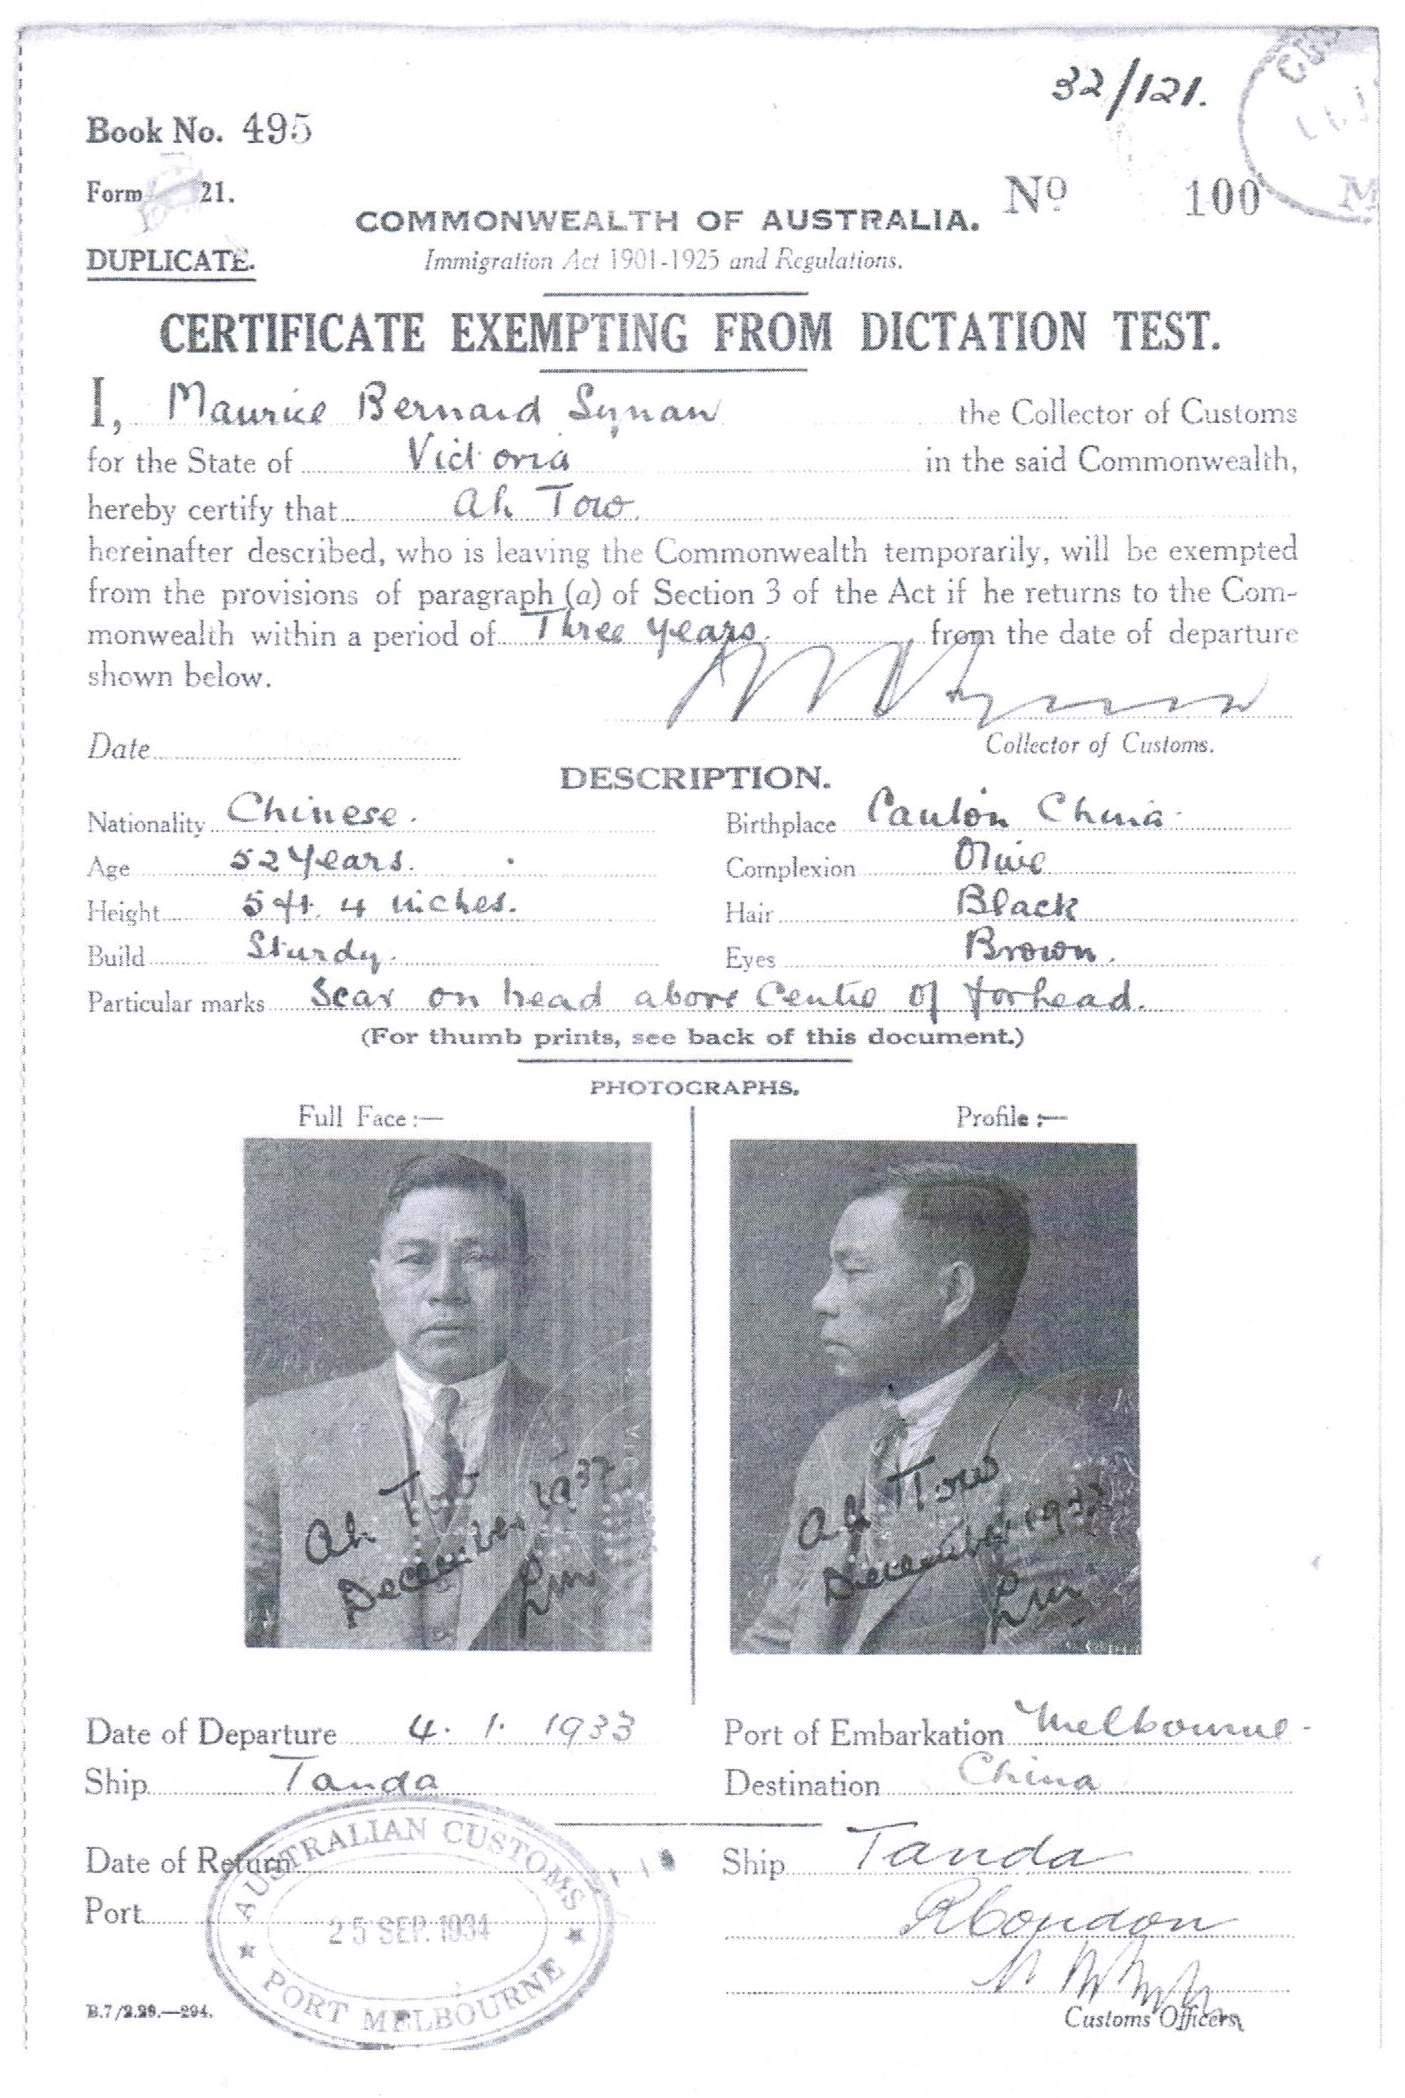 32/121.
Book No. 495
Form 21.
No 100
COMMONWEALTH OF AUSTRALIA.
DUPLICATE.
Immigration Act 1901-1925 and Regulations.
CERTIFICATE EXEMPTING FROM DICTATION TEST.
I, Maurice Bernard Synan the Collector of Customs
for the State of Victoria in the said Commonwealth,
hereby certify that Ah Tow.
hereinafter described, who is leaving the Commonwealth temporarily, will be exempted
from the provisions of paragraph (a) of Section 3 of the Act if he returns to the Com-
monwealth within a period of Three years. from the date of departure
shown below.
Date
Collector of Customs.
DESCRIPTION.
Nationality Chinese.
Birthplace Canton China
Age 52 Years.
Complexion Olive
Height 5 ft. 4 inches.
Hair Black
Build Sturdy.
Eyes Brown.
Particular marks Scar on head above Centre of forhead.
(For thumb prints, see back of this document.)
PHOTOGRAPHS.
Full Face:—
Profile:—
Ah Tow
December 1932
Ah Tow
December 1932
Date of Departure 4. 1. 1933
Port of Embarkation Melbourne
Ship Tanda
Destination China
Date of Return
Ship Tanda
Port
AUSTRALIAN CUSTOMS
25 SEP. 1934
PORT MELBOURNE
RCondon
Customs Officers
B.7/2.29.—294.